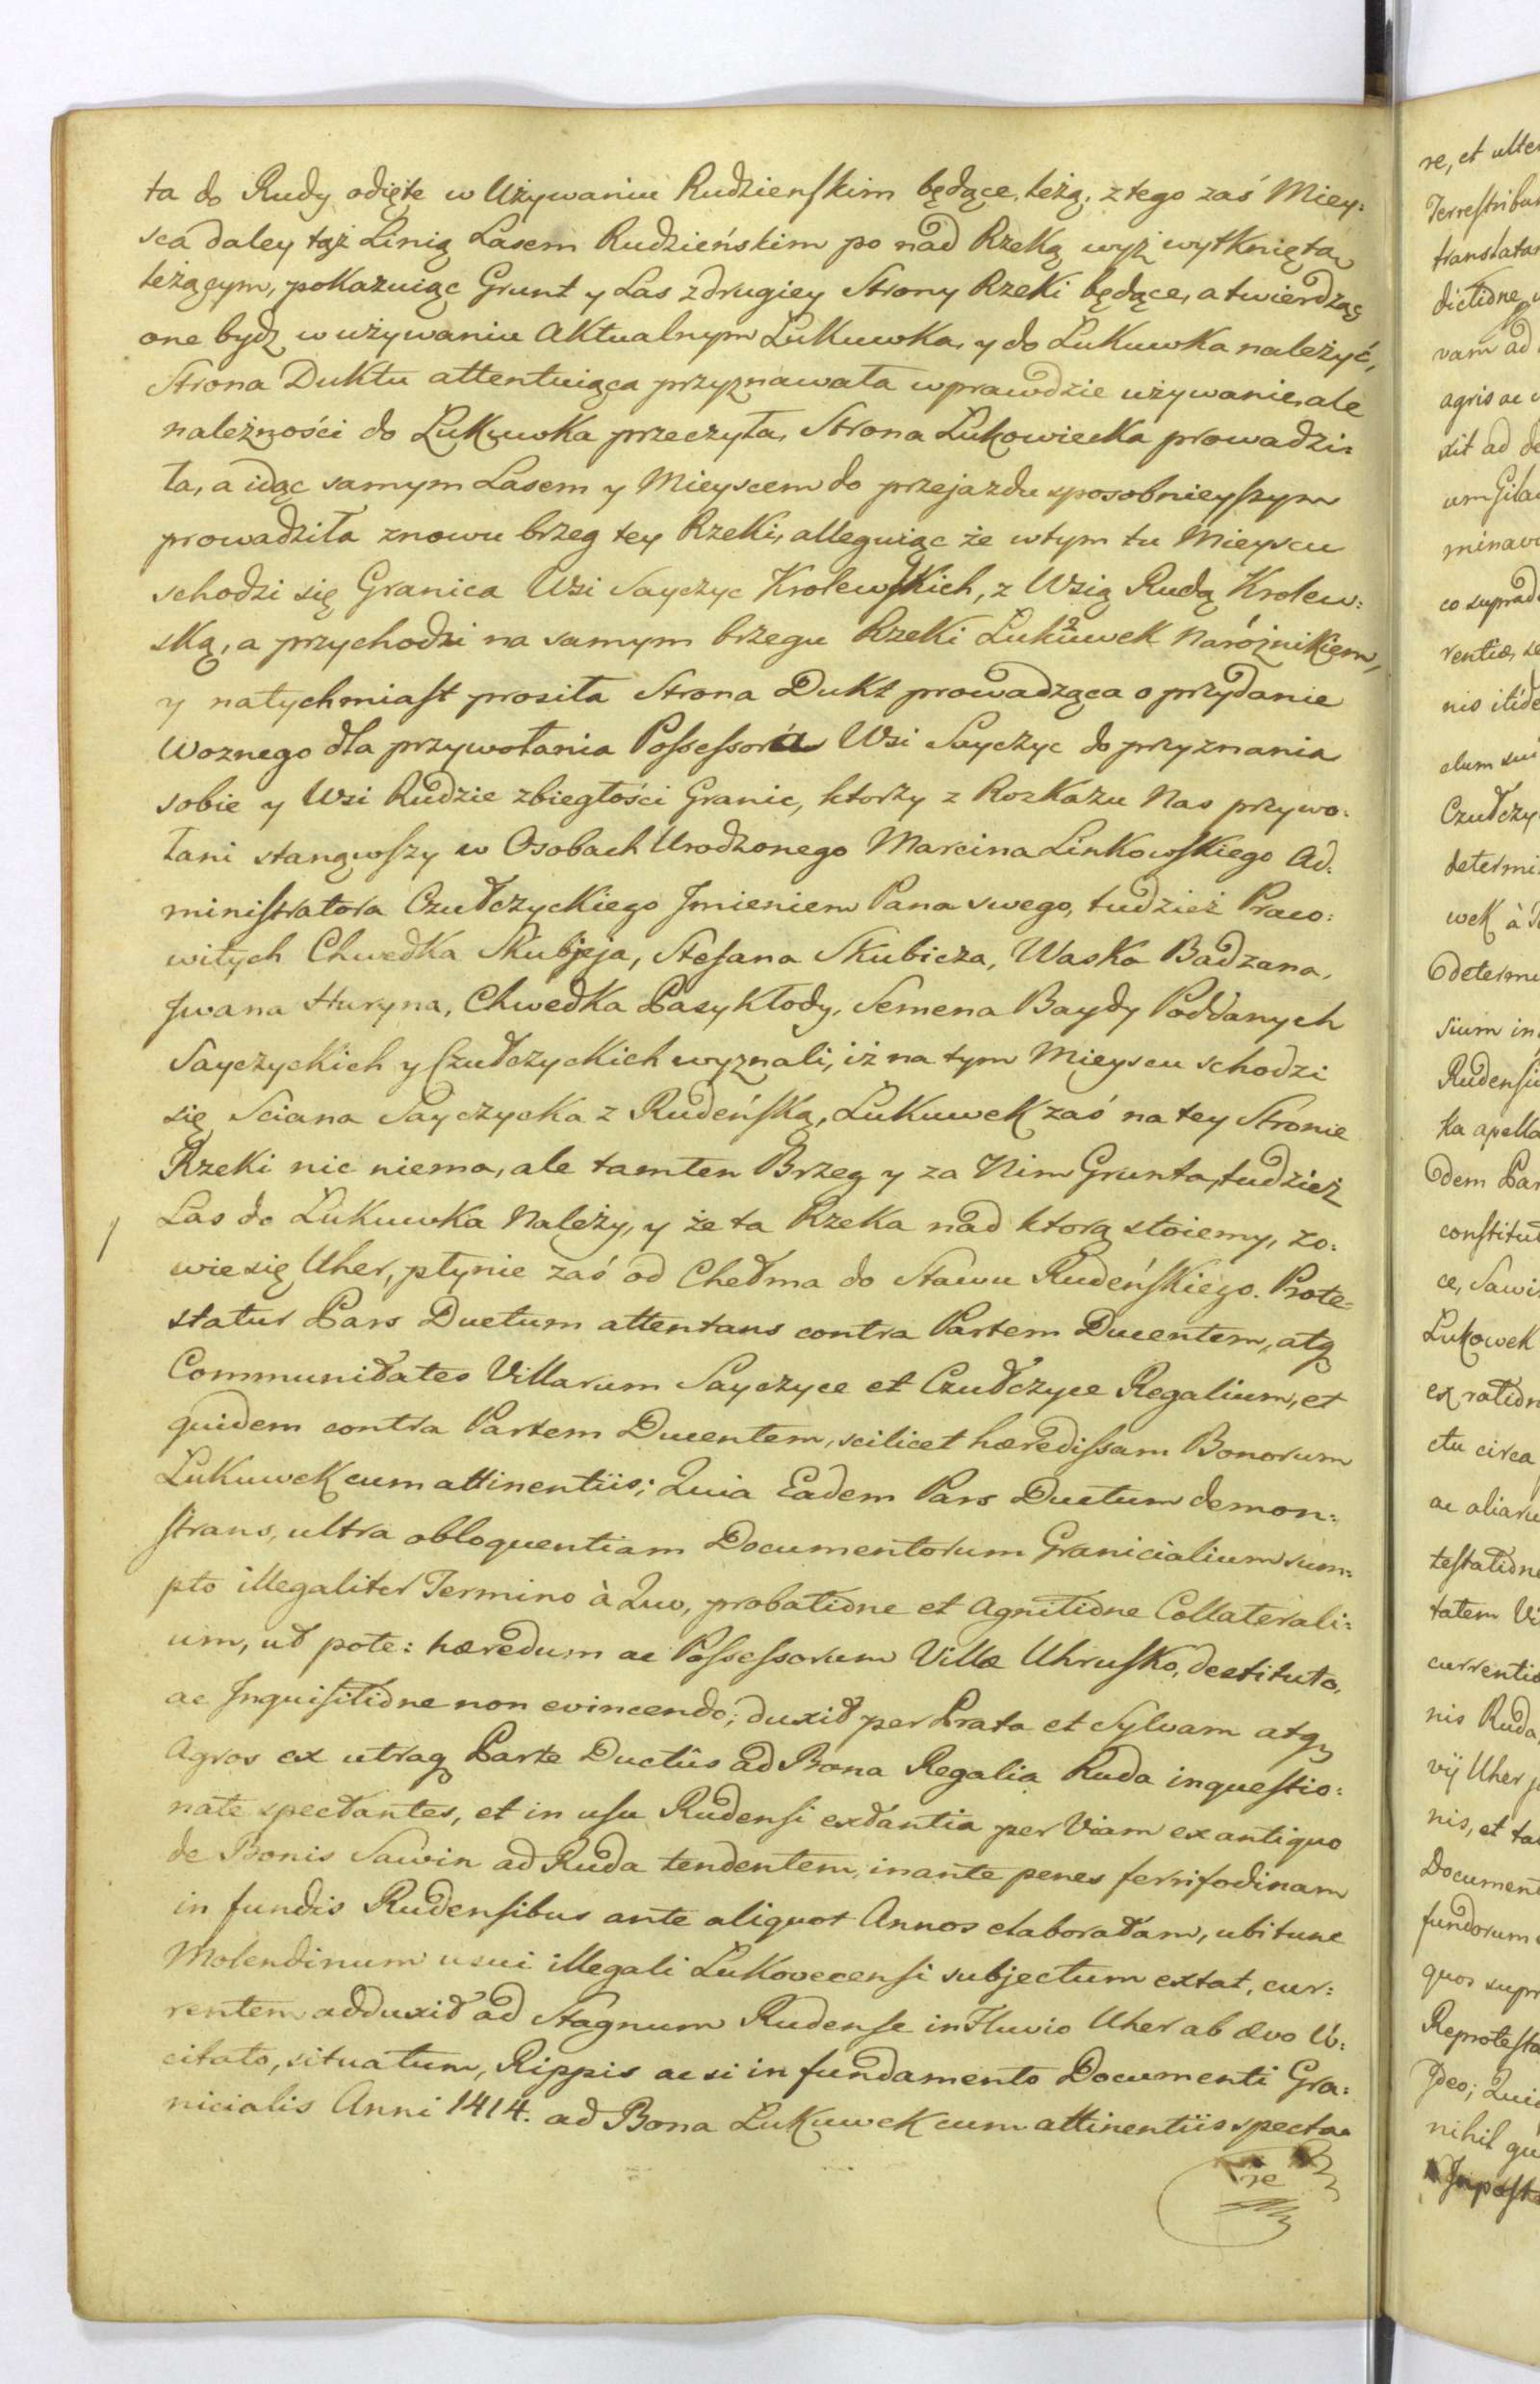 ta do Rudy odięte w Używaniu Rudzienskim będące, leżą; z tego zaś Miey:
sca daley tąż Linią Lasem Rudzieńskim po nad Rzeką wyż wytkniętą
leżącym, pokazuiąc Grunt y Las z drugiey Strony Rzeki będące, a twierdząc
one bydź w używaniu Aktualnym Łukuwka, y do Łukuwka należyć,
Strona Duktu attentuiąca przyznawała wprawdzie używanie, ale
należności do Łukuwka przeczyła, Strona Łukowiecka prowadzi:
ła, a idąc samym Lasem y Mieyscem do przejazdu sposobnieyszym
prowadziła znowu brzeg tey Rzeki, alleguiąc że w tym tu Mieyscu
schodzi się Granica Wsi Sayczyc Krolewskich, z Wsią Rudą Krolew:
ską, a przychodzi na samym brzegu Rzeki Łukuwek Narożnikiem,
y natychmiast prosiła Strona Dukt prowadząca o przydanie
Woznego dla przywołania Possessora Wsi Sayczyc do przyznania
sobie y Wsi Rudzie zbiegłości Granic, ktorzy z Rozkazu Nas przywo:
łani stanąwszy w Osobach Urodzonego Marcina Linkowskiego Ad:
ministratora Czułczyckiego Jmieniem Pana swego, tudzież Praco:
witych Chwedka Skubjeja, Stefana Skubicza, Waska Badzana,
Jwana Huryna, Chwedka Pasykłody, Semena Baydy Poddanych
Sayczyckich y Czułczyckich wyznali, iż na tym Mieyscu schodzi
się Sciana Sayczycka z Rudeńską, Łukuwek zaś na tey Stronie
Rzeki nic niema, ale tamten Brzeg y za Nim Grunta, tudzież
Las do Łukuwka Należy, y że ta Rzeka nad ktorą stoiemy, zo:
wie się Uher, płynie zaś od Chełma do Stawu Rudeńskiego. Prote:
statur Pars Ductum attentans contra Partem Ducentem, atq
Communitates Villarum Sayczyce et Czułczyce Regalium, et
quidem contra Partem Ducentem, scilicet hæredissam Bonorum
Łukuwek cum attinentiis; Quia Eadem Pars Ductum demon:
strans, ultra obloquentiam Documentorum Granicialium sum:
pto illegaliter Termino à Quo, probatione et Agnitione Collaterali:
um, ut pote: hæredum ac Possessorum Villæ Uhrusko, destituto,
ac Inquisitione non evincendo; duxit per Prata et Sylvam atq
Agros ex utraq Parte Ductûs ad Bona Regalia Ruda inquestio:
nate spectantes, et in usu Rudensi extantia per Viam ex antiquo
de Bonis Sawin ad Ruda tendentem, inante penes ferrifodinam
in fundis Rudensibus ante aliquot Annos elaboratam, ubi tunc
Molendinum usui illegali Łukovecensi subjectum extat, cur:
rentem adduxit ad Stagnum Rudense in Fluvio Uher ab ævo U:
citato, situatum, Rippis ac si in fundamento Documenti Gra:
nicialis Anni 1414. ad Bona Łukuwek cum attinentiis specta:
re